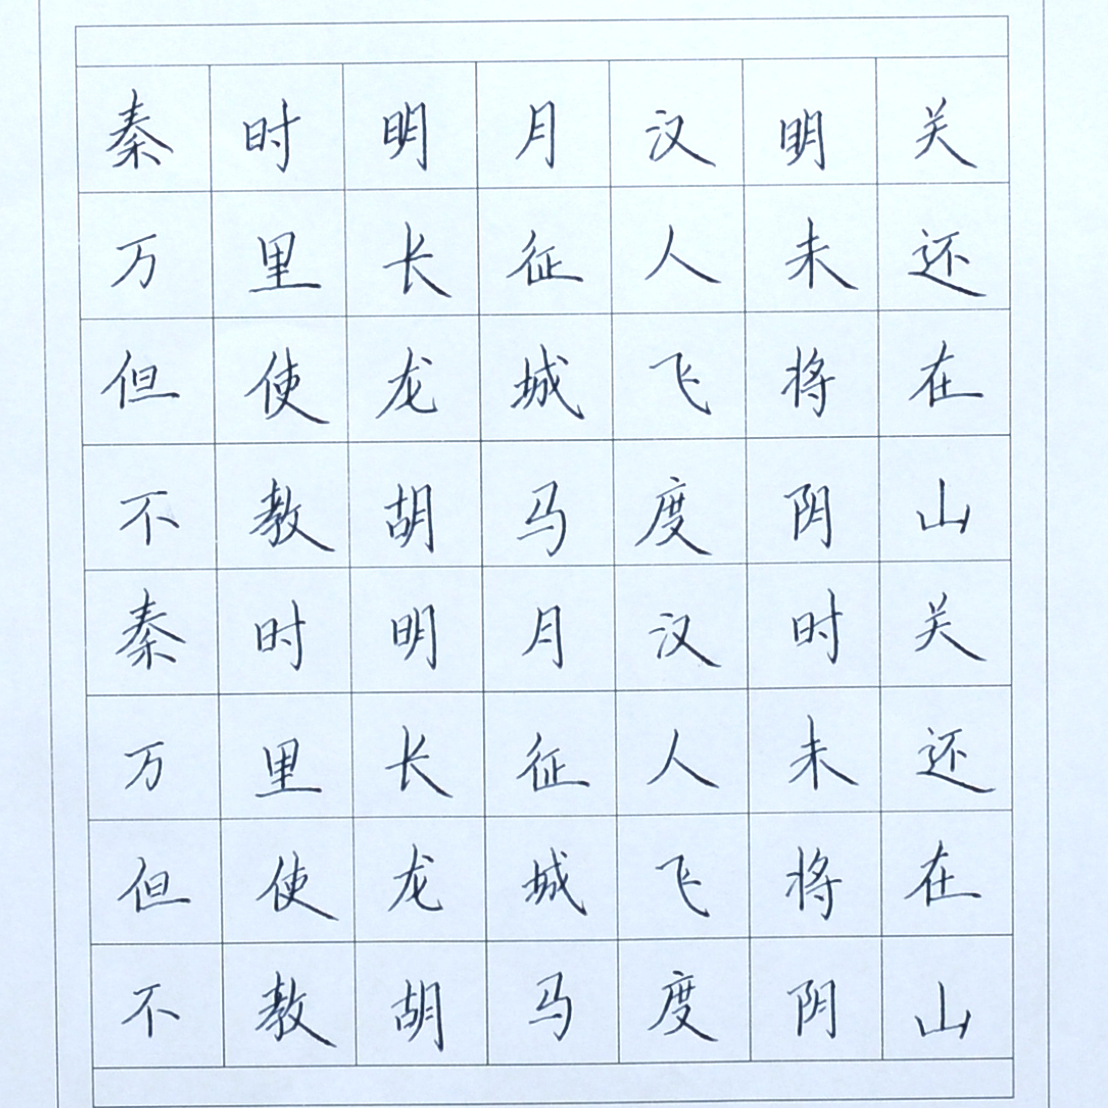 秦时明月汉明关
万里长征人未还
但使龙城飞将在
不教胡马度阴山
秦时明月汉时关
万里长征人未还
但使龙城飞将在
不教胡马度阴山